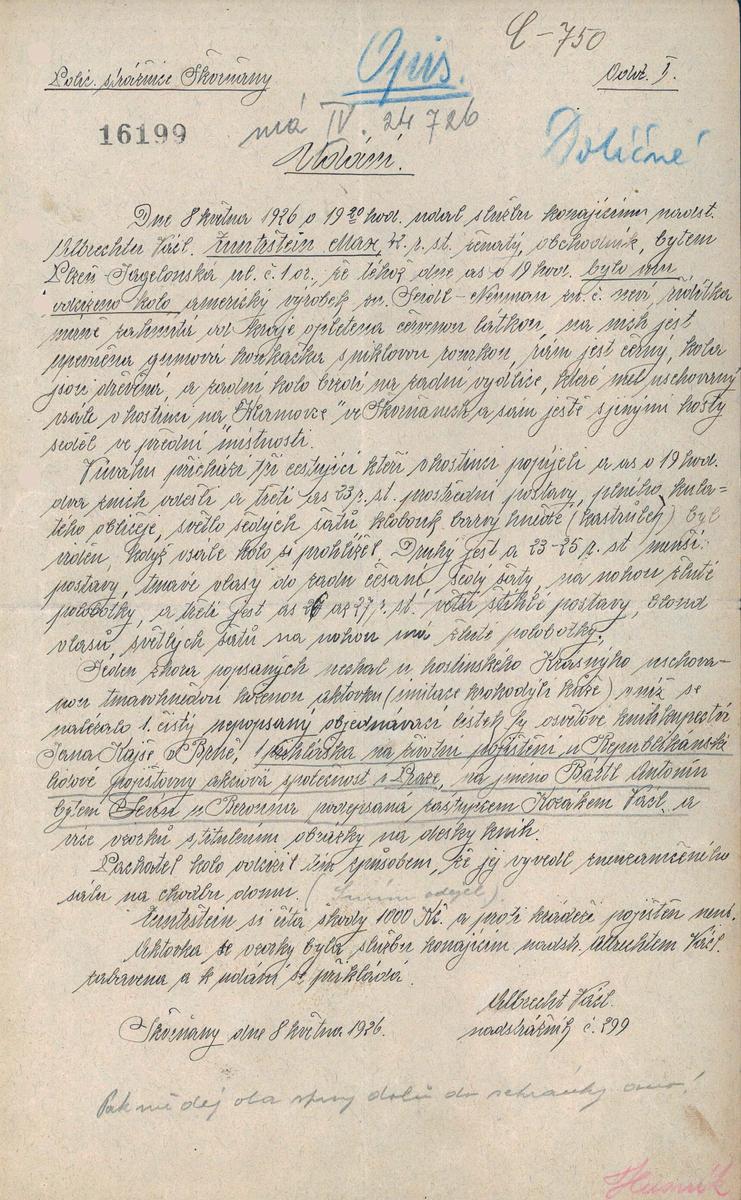 C-750
Polic. strážnice Škvrňany
Opis.
Odd. I.
16199
má IV. 24726
Doličné
Udání.
Dne 8 května 1926 o 19 20 hod. udal službu konajícímu nadst.
Albrechtu Václ. Žmitrštein Max, 42 r. st. ženatý, obchodník, bytem
Plzeň Jagelonská ul. č. 1 or., že téhož dne as o 19 hod. bylo mu
odcizeno kolo americký výrobek zn. Seidl-Neuman zn. č. neví, řidítka
mírně zahnutá od kraje opletena červenou látkou, na nich jest
upevněna gumová houkačka s niklovou rourkou, rám jest černý, kola
jsou dřevěná, a zadní kolo brzdí na zadní vydlice, které měl uschovaný
vzadu v hostinci na "Heřmovce" ve Škvrňanech a sám ještě s jinými hosty
seděl ve přední místnosti.
V úvahu přichází tři cestující kteří v hostinci popíjeli a as o 19 hod.
dva z nich odešli a třetí as 33 r. st. prostřední postavy, plného, kula-
tého obličeje, světlo šedých šatů klobouk barvy hnědé (kastrůlek) byl
viděn, když vzadu kolo si prohlížel. Druhý jest a 23-25 r. st menší
postavy, tmavé vlasy do zadu česaní šedý šaty, na nohou žluté
polobotky, a třetí jest as 26 až 27 r. st. větší štíhlé postavy, blond
vlasů, světlých šatů na nohou má žluté polobotky.
Jeden z hora popsaných nechal u hostinského Krásnýho uschova-
nou tmavohnědou koženou aktovku (imitace krokodýlí kůže) v níž se
nalézalo 1. čistý nepopsaný objednávací lístek fy osvětové knihkupectví
Jana Hajše v Brně, 1 přihláška na životní pojištění u Republikánské
lidové pojišťovny akciová společnost v Praze, na jméno Bartl Antonín
bytem u Berouna podepsaná zástupcem Kozákem Václ. a
více vzorků s titulními obrázky na desky knih.
Pachatel kolo odcizil tím způsobem, že jej vyvedl z neuzamčeného
sálu na chodbu domu. (S ním odejel).
Žmitrštein si čítá škody 1000 Kč. a proti krádeži pojištěn není.
Aktovka se vzorky byla službu konajícím nadstr. Albrechtem Václ.
zabavena a k udání se přikládá.
Albrecht Václ.
Škvrňany dne 8 května 1926.
nadstrážník č. 299
Pak mě dej oba spisy dolů do schránky